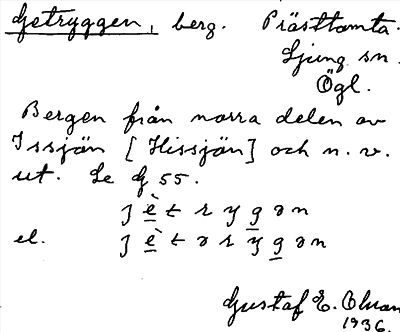 Getryggen, berg. Prästtomta.
Ljung sn.
Ögl.
Bergen från norra delen av
Issjön [Hissjön] och n. v.
ut. Se G 55.
ȷ è t r y g ə n
el. ȷ è t ə r y g ə n
Gustaf E. Olsson
1936.